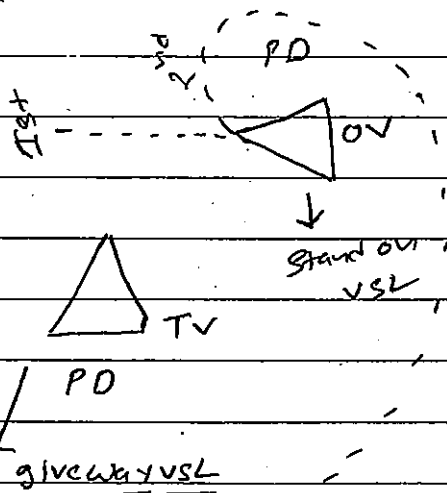 2nd
PD
Ist
OV
Stand on
VSL
TV
PD
give way VSL